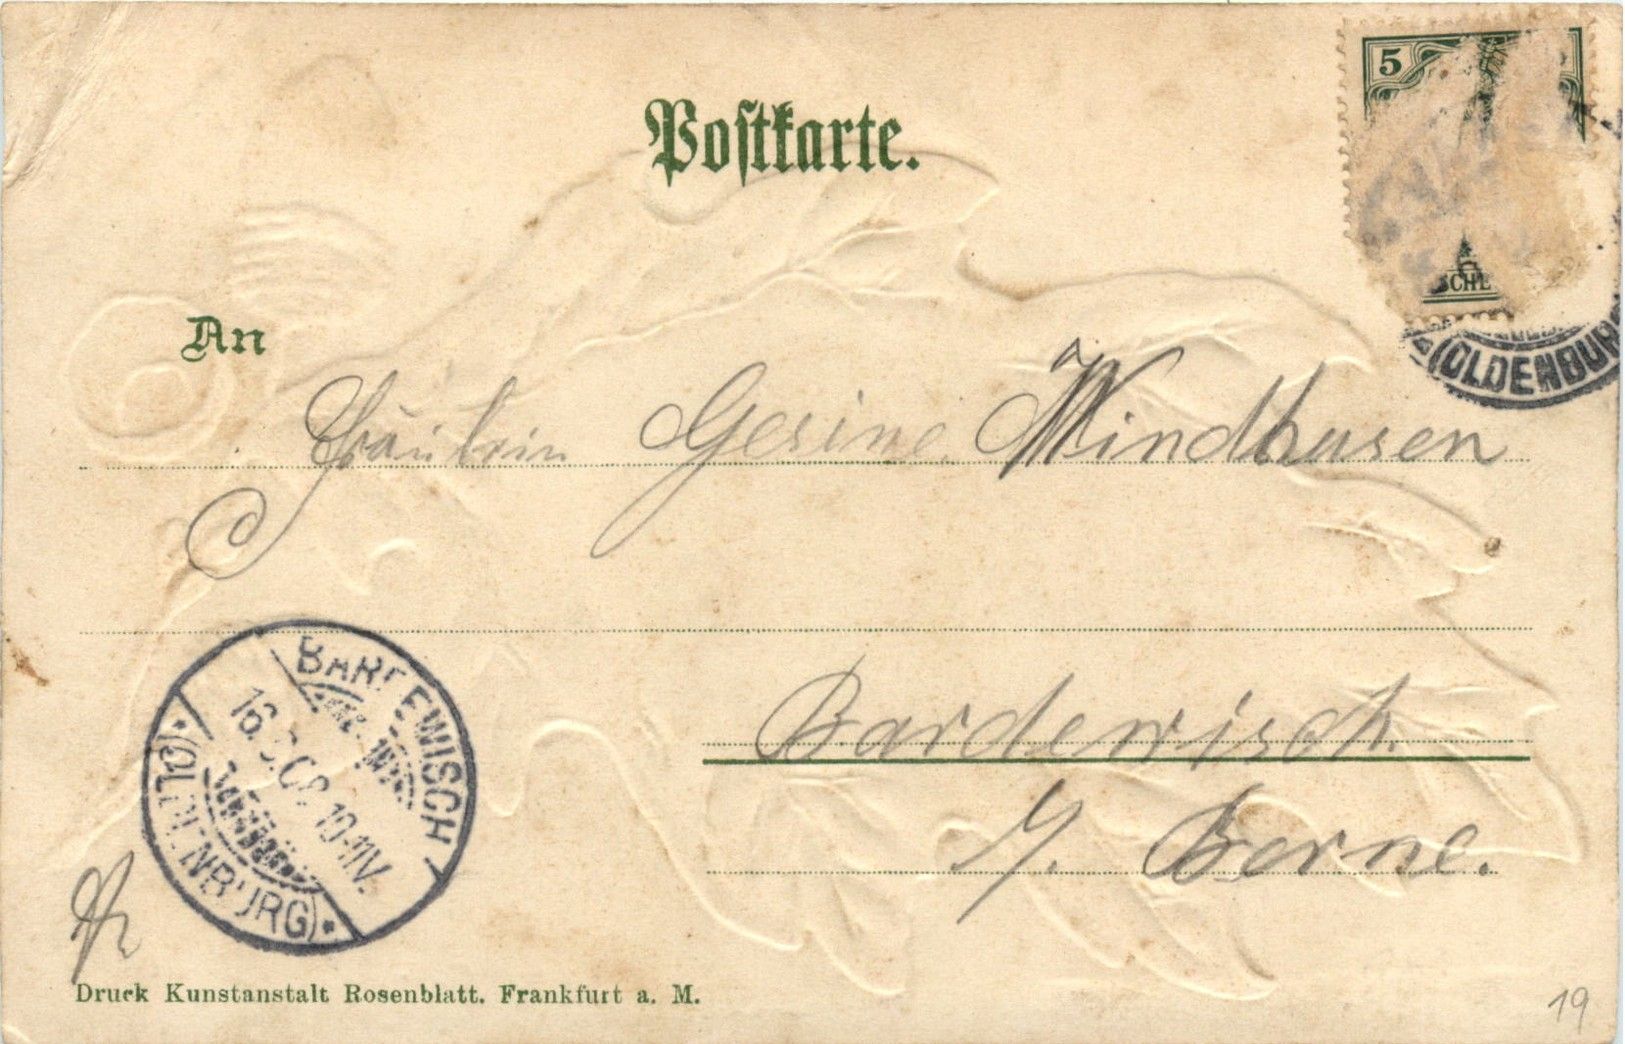 Postkarte.
5
SCHE
(OLDENBURG
An
Fräulein Gesine Windhusen
BARDEWISCH
16. .02 10-11V.
(OLDENBURG)
Bardewisch.
b/. Berne.
Druck Kunstanstalt Rosenblatt. Frankfurt a. M.
19